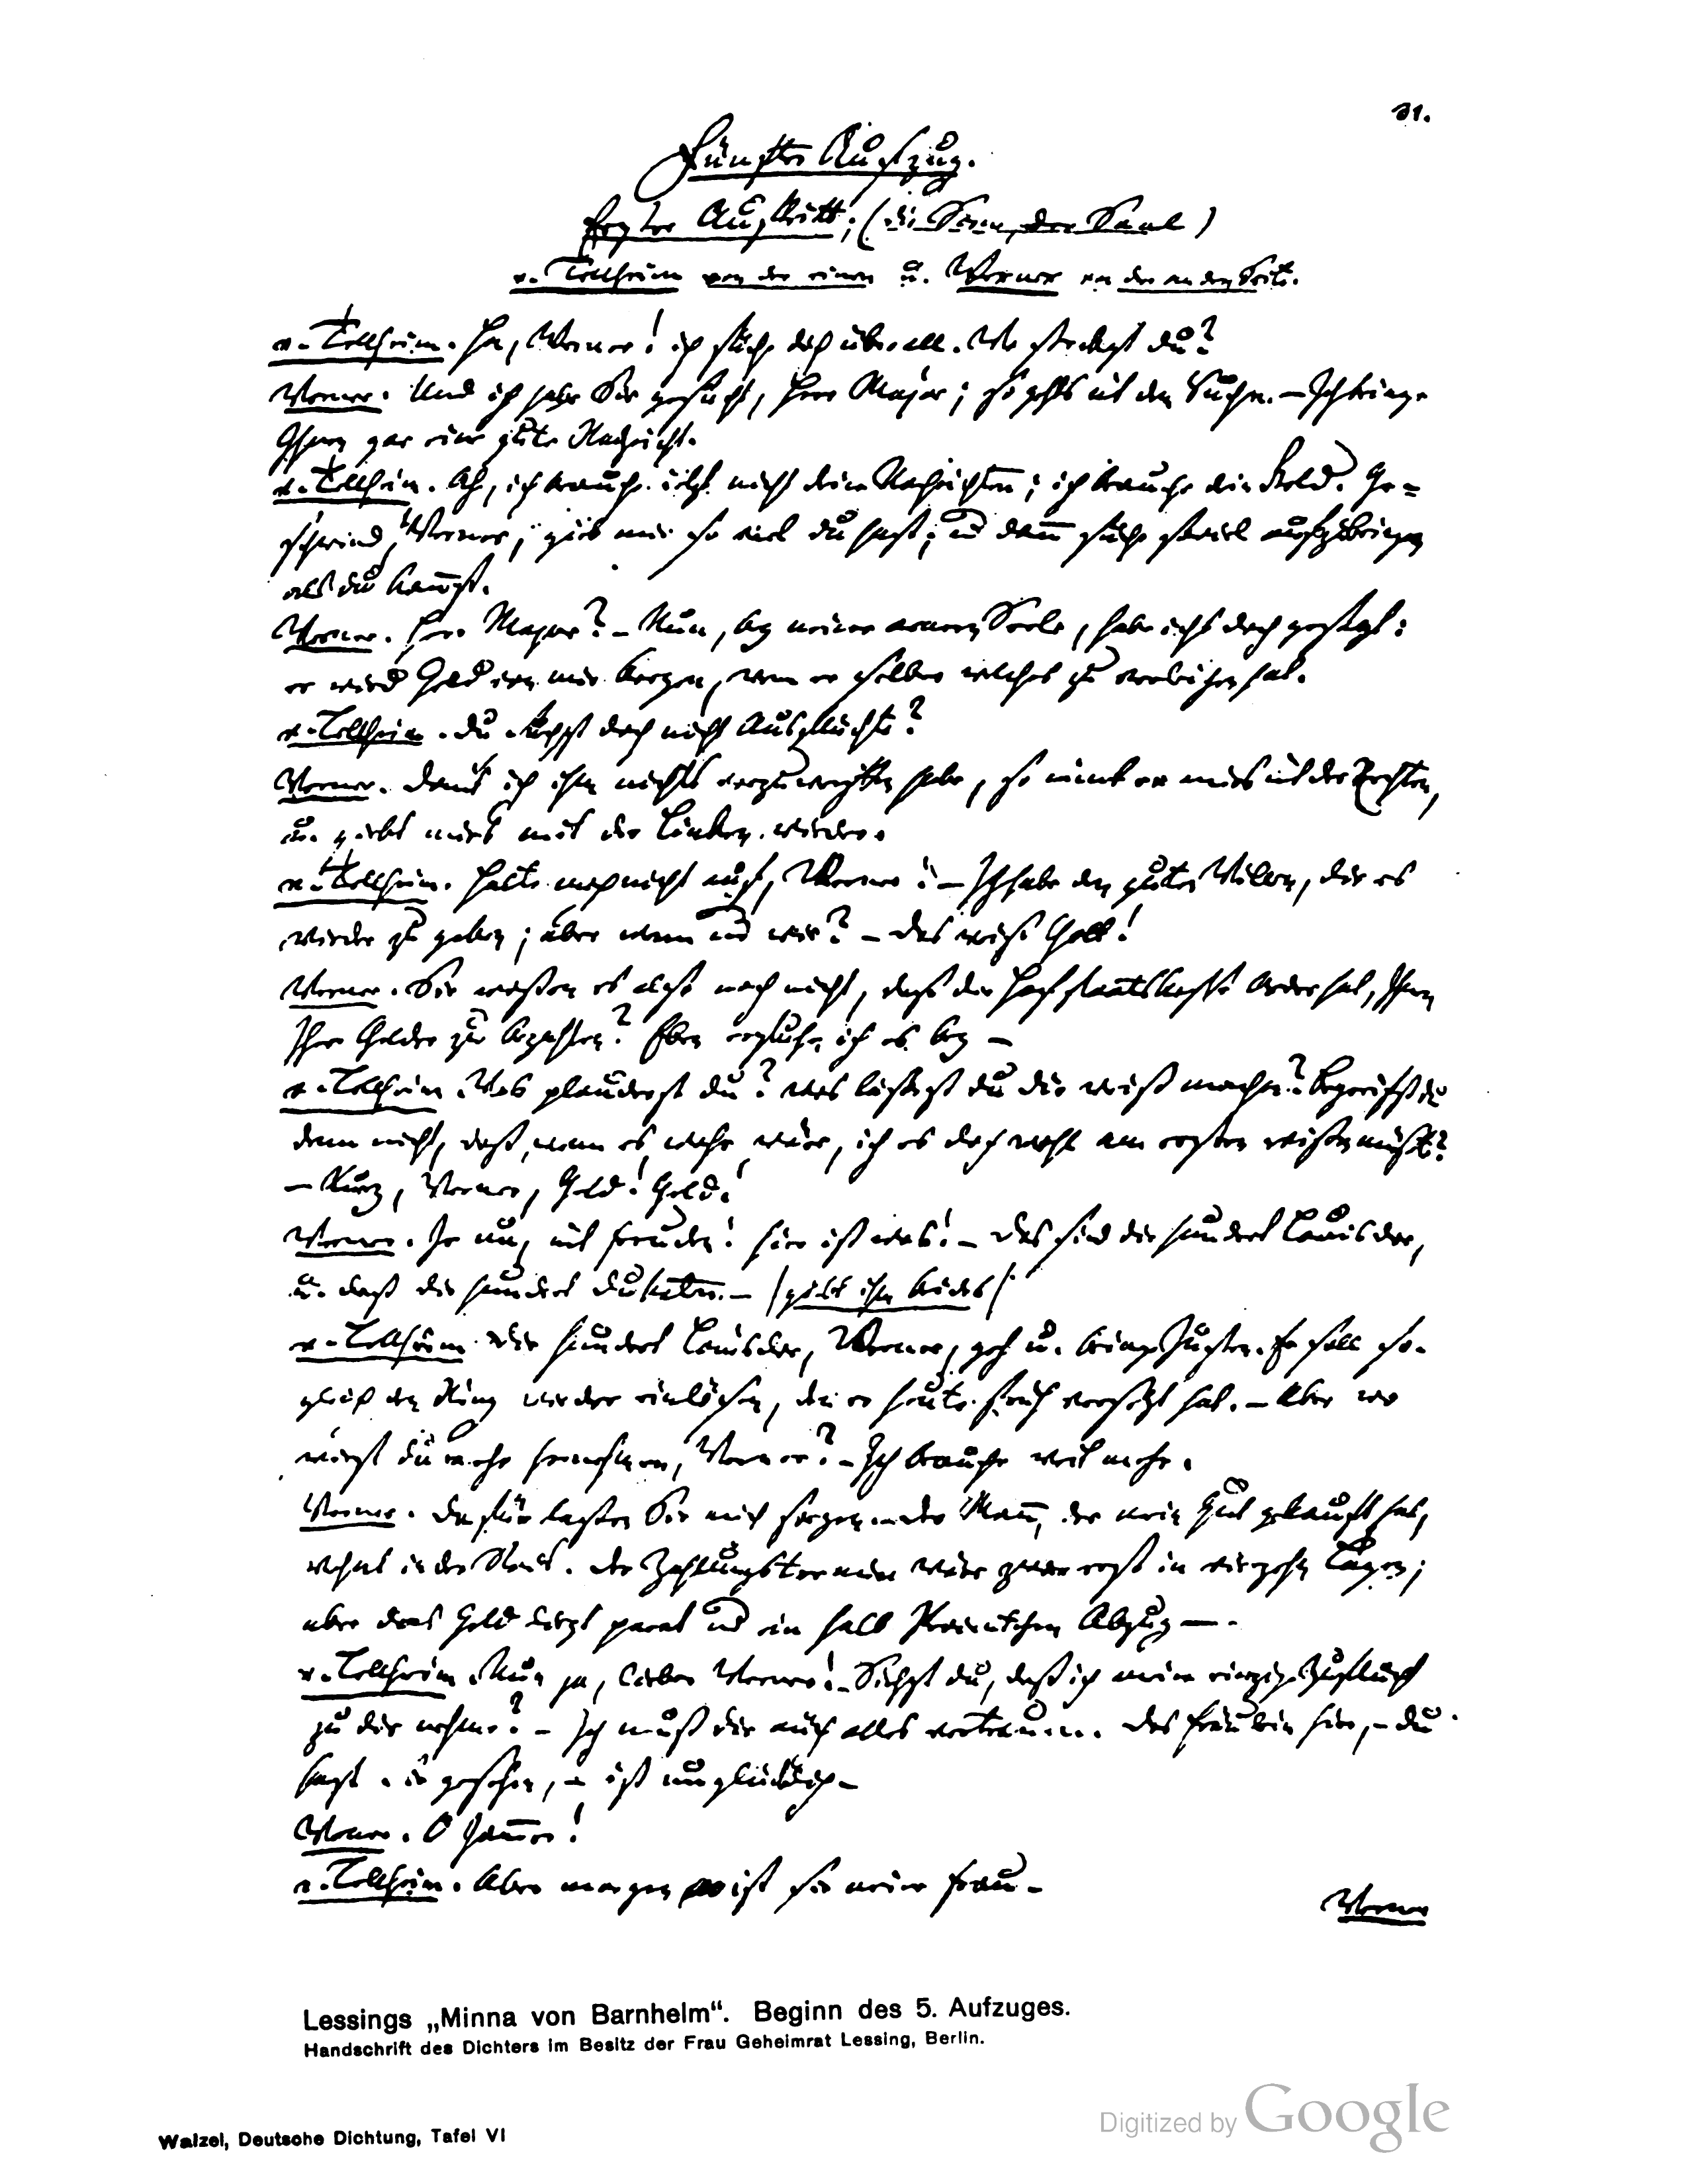 31.
Fünfter Aufzug.
Erster Auftritt; (die Scene, der Saal)
v. Tellheim von der einen u. Werner von der andern Seite.
v. Tellheim. Ha, Werner! ich suche dich überall. Wo steckst du?
Werner. Und ich habe Sie gesucht, Herr Major; so gehts mit dem Suchen. — Ich bringe
Ihnen gar eine gute Nachricht.
v. Tellheim. Ah, ich brauche itzt nicht deine Nachrichten; ich brauche dein Geld. Ge=
schwind, Werner, gieb mir so viel du hast; und dann suche so viel aufzubringen
als du kannst.
Werner. Herr Major? – Nun, bey meiner armen Seele, habe ichs doch gesagt:
er wird Geld von mir borgen, wenn er selber welches zu verleihen hat.
v. Tellheim. Du suchst doch nicht Ausflüchte?
Werner. Damit ich ihm nichts vorzuwerffen habe, so nimt er mirs mit der Rechten,
u. giebt mirs mit der Linken wieder.
v. Tellheim. Halte mich nicht auf, Werner! – Ich habe den guten Willen, dir es
wieder zu geben; aber wenn und wie? – Das weiß Gott!
Werner. Sie wissen es also noch nicht, daß die Hofstaatskasse Order hat, Ihnen
Ihre Gelder zu bezahlen? Eben erfuhr ich es bey –
v. Tellheim. Was plauderst du? was lässest du dir weiß machen? Begreifst du
denn nicht, daß, wenn es wahr wäre, ich es doch wohl am ersten wissen müßte?
– Kurz, Werner, Geld! Geld!
Werner. Je nu, mit Freuden! hier ist was! – Das sind die hundert Louisdor,
u. daß die hundert Dukaten. – (giebt ihm beides)
v. Tellheim. Die hundert Louisdor, Werner, geh u. bring Justen. Er soll so-
gleich den Ring wieder einlösen, den er heute früh versetzt hat. – Aber wo
wirst du mehr hernehmen, Werner? – Ich brauche weit mehr.
Werner. Dafür lassen Sie mich sorgen. – Der Mann, der mein Gut gekauft hat,
wohnt in der Stadt. Der Zahlungstermin wäre zwar erst in vierzehn Tagen;
aber das Geld liegt parat und ein halb Procentchen Abzug —.
v. Tellheim. Nun ja, lieber Werner! – Siehst du, daß ich meine einzige Zuflucht
zu dir nehme? – Ich muß dir auch alles vertrauen. Das Fräulein hier, – du
hast sie gesehn, – ist unglücklich –
Werner. O Jammer!
v. Tellheim. Aber morgen ist sie meine Frau –
Werner
Lessings „Minna von Barnhelm“. Beginn des 5. Aufzuges.
Handschrift des Dichters im Besitz der Frau Geheimrat Lessing, Berlin.
Walzel, Deutsche Dichtung, Tafel VI
Digitized by Google